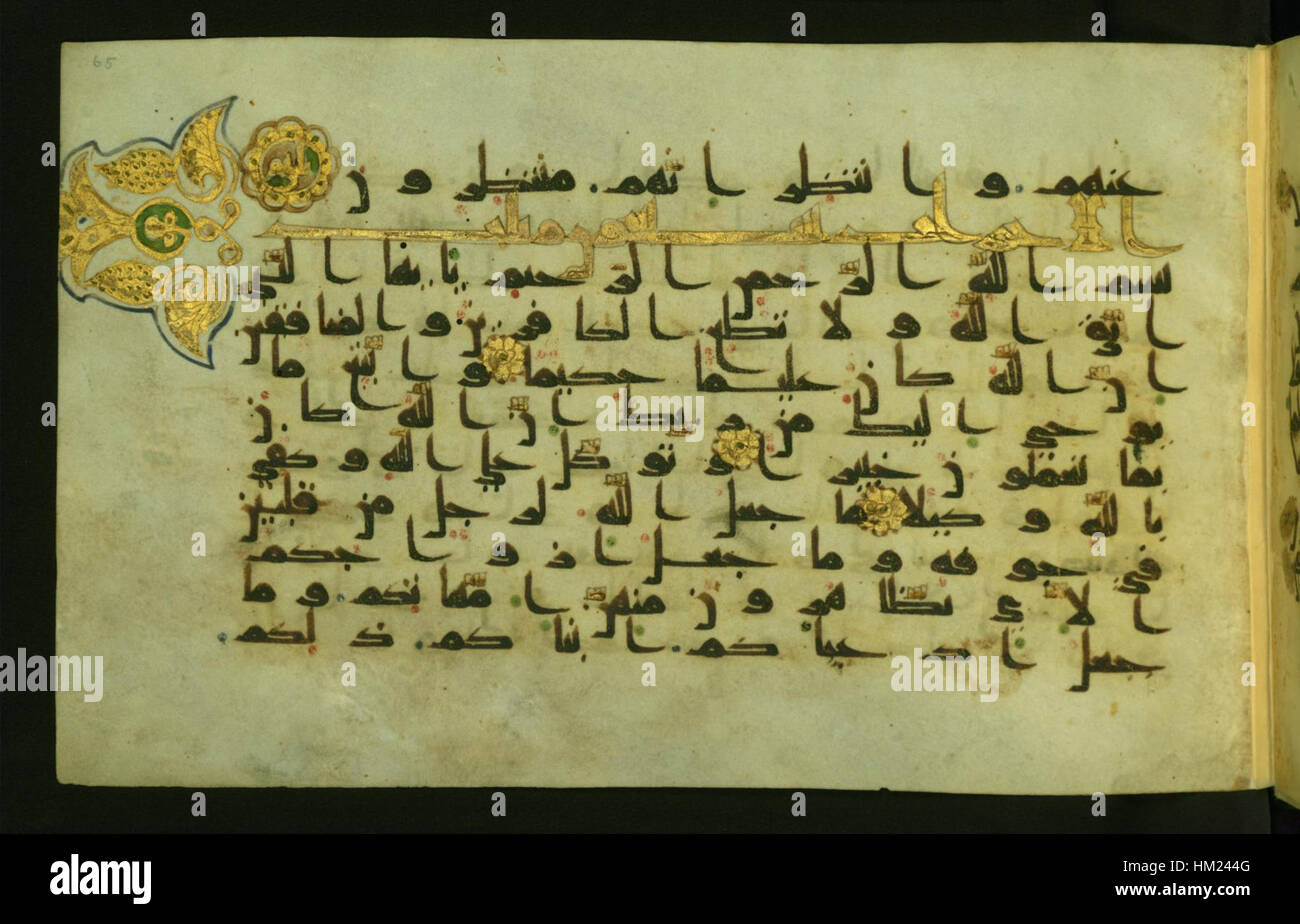 65
عنهم وانتظر انهم منتظرون
بسم الله الرحمن الرحيم يايها النبي
اتق الله ولا تطع الكافرين والمنافقين
ان الله كان عليما حكيما واتبع ما
يوحى اليك من ربك ان الله كان
بما تعملون خبيرا وتوكل على الله وكفى
بالله وكيلا ما جعل الله لرجل من قلبين
في جوفه وما جعل ازواجكم
الاي تظاهرون منهن امهاتكم وما
جعل ادعياكم ابناكم ذلكم
a alamy stock photo
HM244G
www.alamy.com